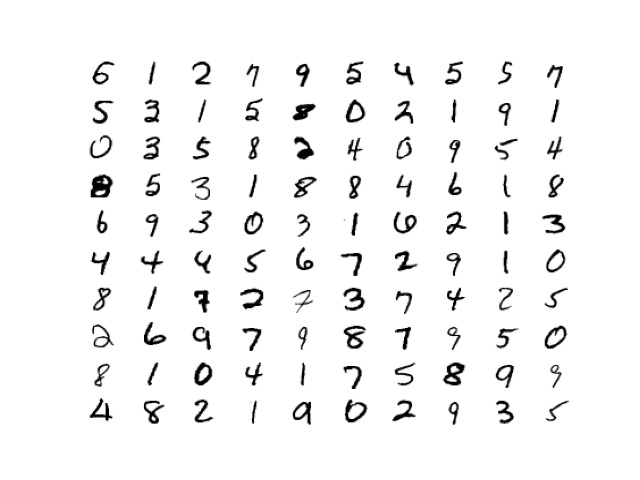 6 1 2 7 9 5 4 5 5 7
5 3 1 5 8 0 2 1 9 1
0 3 5 8 2 4 0 9 5 4
8 5 3 1 8 8 4 6 1 8
6 9 3 0 3 1 6 2 1 3
4 4 4 5 6 7 2 9 1 0
8 1 7 2 7 3 7 4 2 5
2 6 9 7 9 8 7 9 5 0
8 1 0 4 1 7 5 8 9 9
4 8 2 1 9 0 2 9 3 5